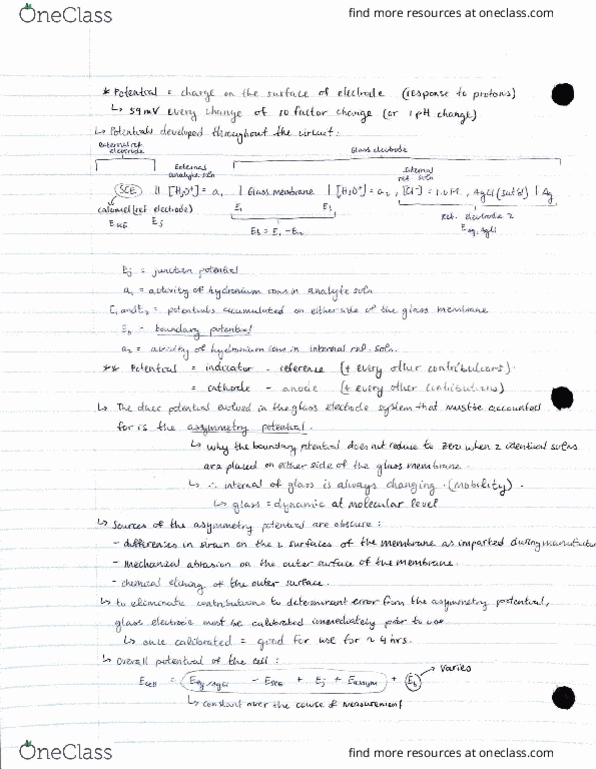 OneClass
find more resources at oneclass.com
* Potential = charge on the surface of electrode (response to protons)
↳ 59mV every change of 10 factor change (or 1 pH change)
↳ Potentials developed throughout the circuit:
external ref. electrode
Glass electrode
External analyte soln
Internal ref. soln
SCE || [H3O+] = a1 | Glass membrane | [H3O+] = a2, [Cl-] = 1.0 M, AgCl (sat'd) | Ag
calomel (ref electrode)
E1 E2
Ref. electrode 2
ESCE Ej
Eb = E1 - E2
EAg, AgCl
Ej = junction potential
a1 = activity of hydronium ions in analyte soln
E1 and E2 = potentials accumulated on either side of the glass membrane
Eb - boundary potential
a2 = activity of hydronium ions in internal ref. soln.
** Potential = indicator - reference (+ every other contributions).
= cathode - anode (+ every other contributions)
↳ The potential evolved in the glass electrode system that must be accounted
for is the asymmetry potential.
↳ why the boundary potential does not reduce to zero when 2 identical solns
are placed on either side of the glass membrane.
↳ ∴ internal of glass is always changing. (mobility).
↳ glass = dynamic at molecular level
↳ Sources of the asymmetry potential are obscure:
- differences in strain on the 2 surfaces of the membrane as imparted during manufactu
- mechanical abrasion on the outer surface of the membrane.
- chemical etching of the outer surface.
↳ to eliminate contributions to determinant error from the asymmetry potential,
glass electrode must be calibrated immediately prior to use
↳ once calibrated = good for use for ~ 4 hrs.
↳ Overall potential of the cell:
varies
Ecell = EAg/AgCl - ESCE + Ej + Eassym + Eb
↳ constant over the course of measurement
OneClass
find more resources at oneclass.com